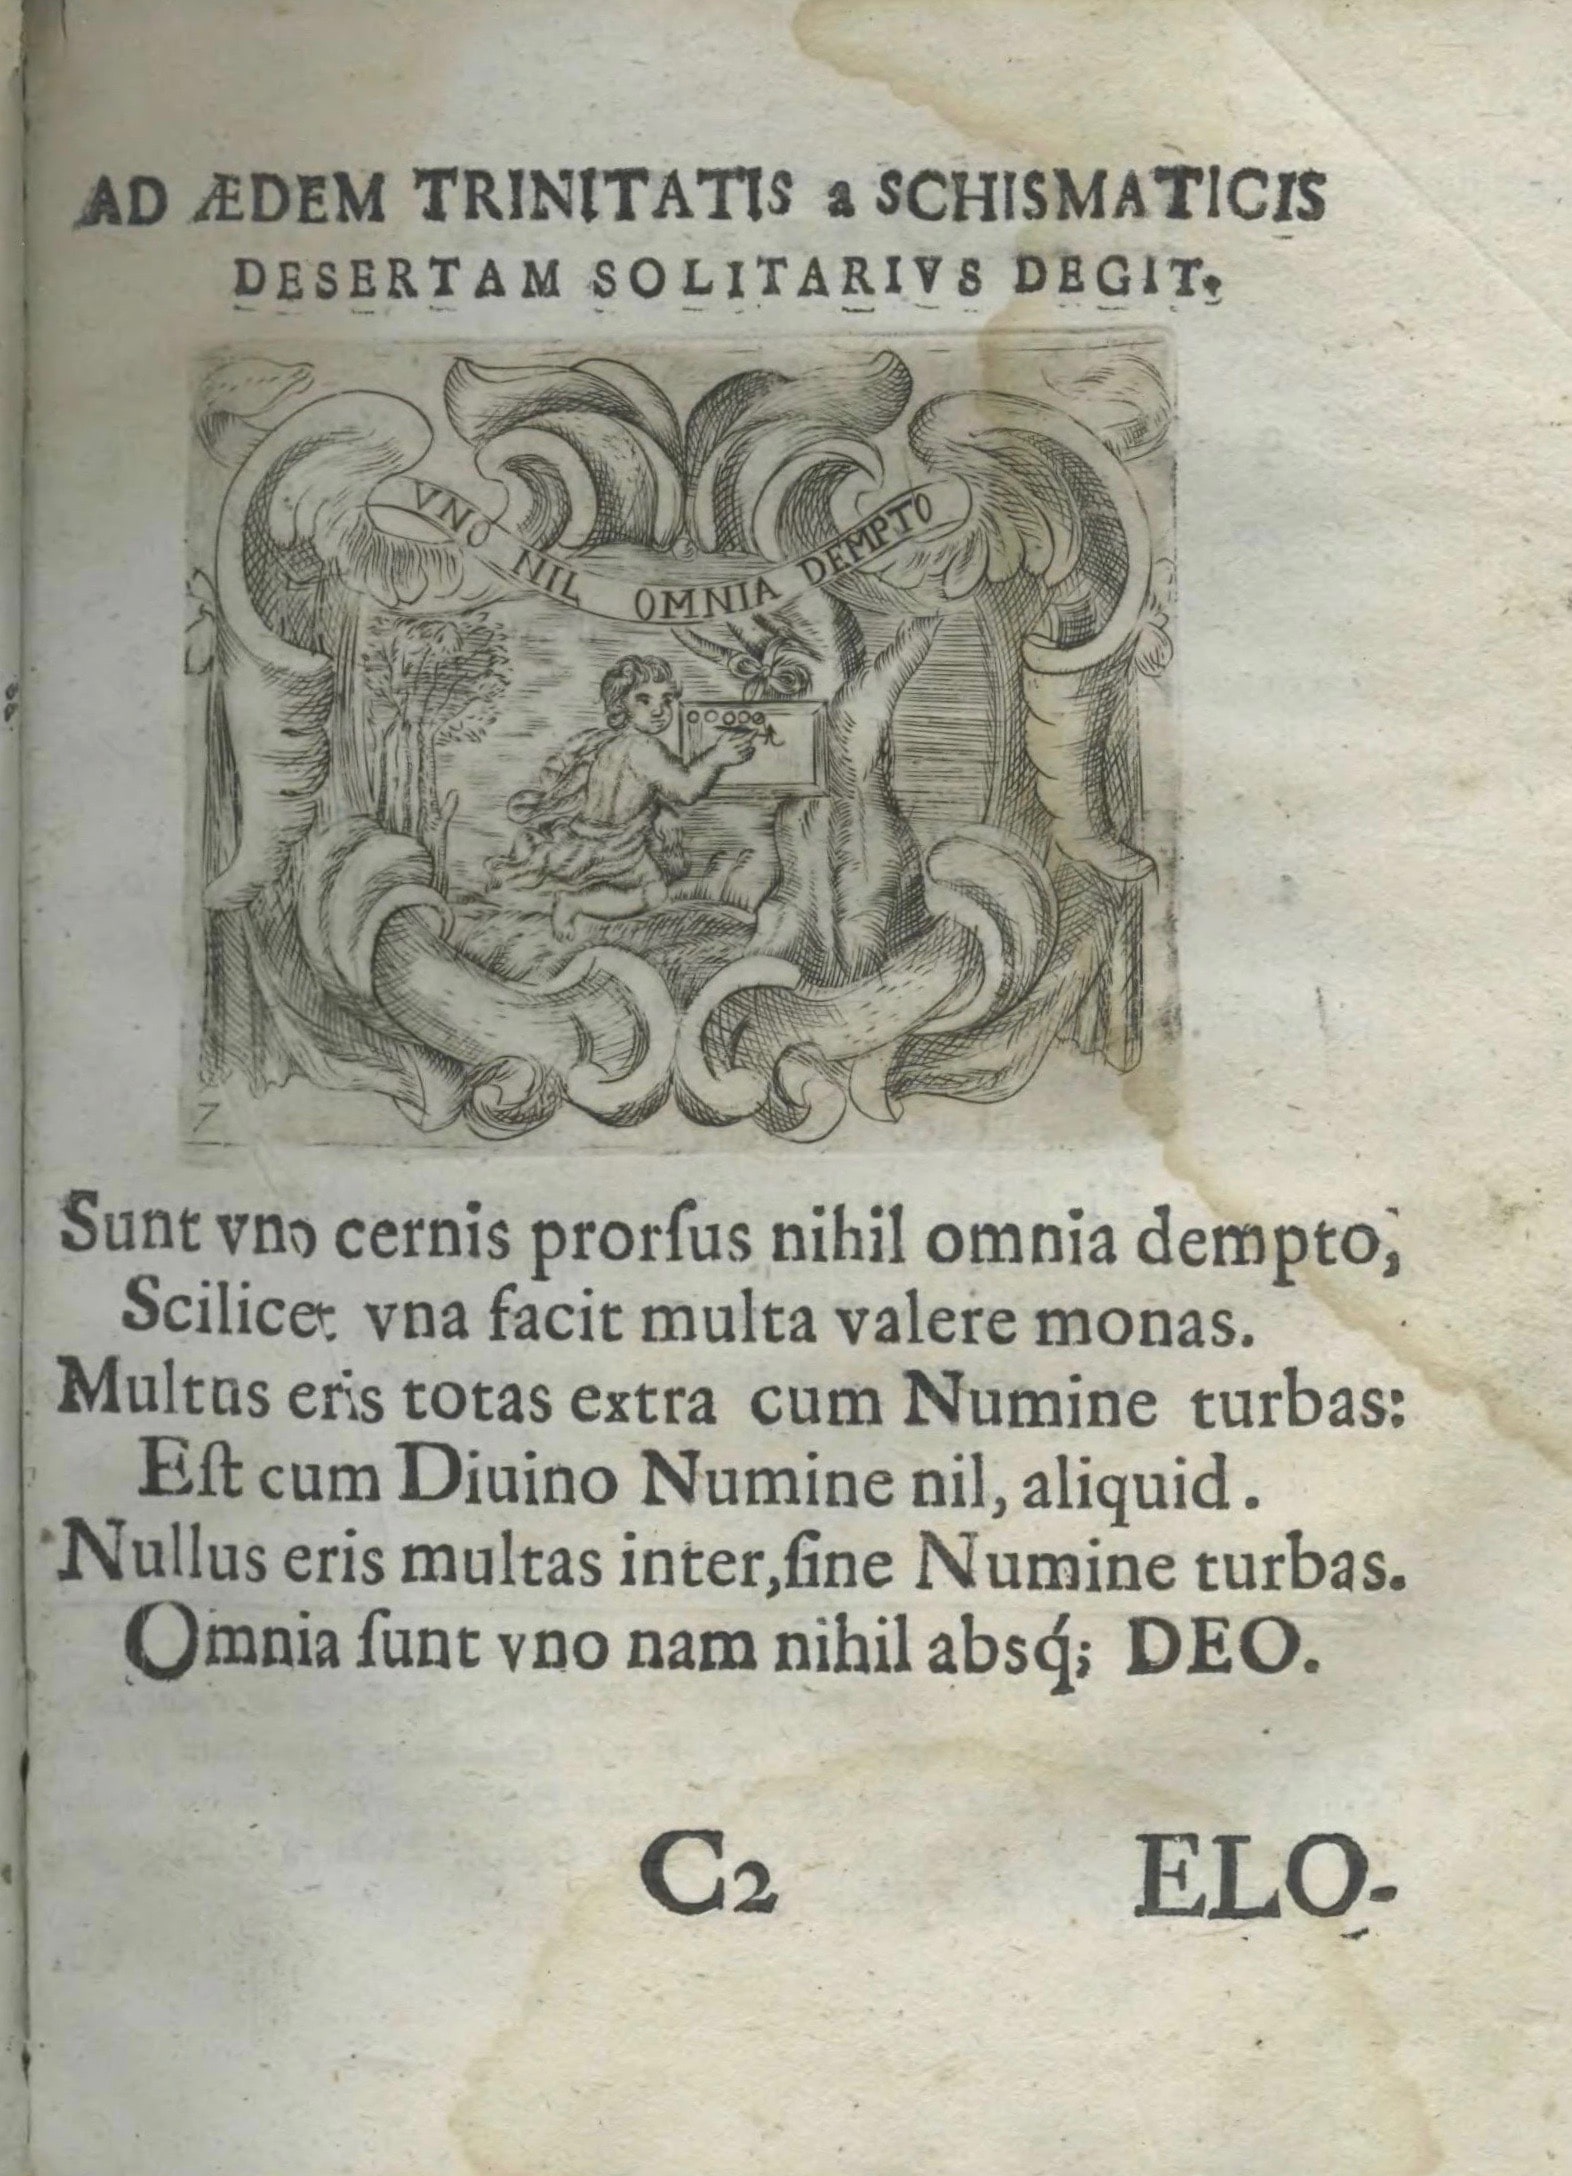 AD ÆDEM TRINITATIS a SCHISMATICIS
DESERTAM SOLITARIVS DEGIT.
VNO NIL OMNIA DEMPTO
7
Sunt vno cernis prorſus nihil omnia dempto,
Scilicet vna facit multa valere monas.
Multus eris totas extra cum Numine turbas:
Eſt cum Diuino Numine nil, aliquid.
Nullus eris multas inter, ſine Numine turbas.
Omnia ſunt vno nam nihil absq́; DEO.
C2 ELO-